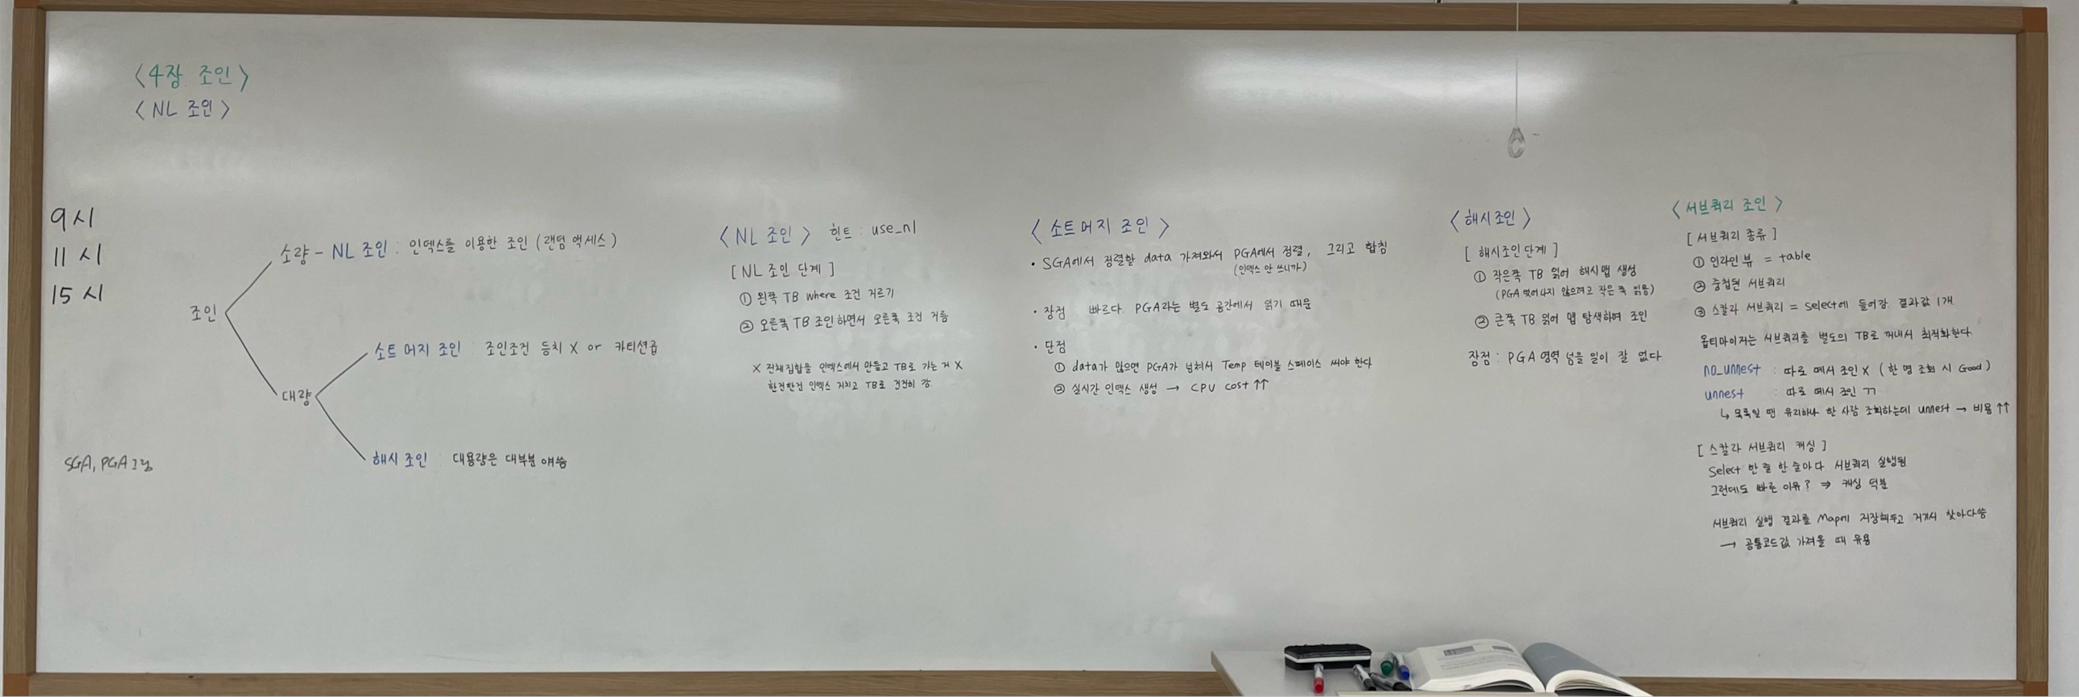 <4장 조인>
<NL 조인>
9시
11시
15시
SGA, PGA 그림
조인
소량 - NL 조인 : 인덱스를 이용한 조인 (랜덤 액세스)
대량
소트 머지 조인 : 조인조건 등치 X or 카티션곱
해시 조인 : 대용량은 대부분 얘씀
<NL 조인> 힌트 : use_nl
[NL 조인 단계]
① 왼쪽 TB where 조건 거르기
② 오른쪽 TB 조인하면서 오른쪽 조건 거름
X 전체집합을 인덱스에서 만들고 TB로 가는 거 X
한건한건 인덱스 거치고 TB로 건건히 감
<소트머지 조인>
· SGA에서 정렬할 data 가져와서 PGA에서 정렬, 그리고 합침
(인덱스 안 쓰니까)
· 장점 빠르다 PGA라는 별도 공간에서 읽기 때문
· 단점
① data가 많으면 PGA가 넘쳐서 Temp 테이블 스페이스 써야 한다
② 실시간 인덱스 생성 → CPU cost ↑↑
<해시조인>
[해시조인단계]
① 작은쪽 TB 읽어 해시맵 생성
(PGA 벗어나지 않으려고 작은 쪽 읽음)
② 큰쪽 TB 읽어 맵 탐색하며 조인
장점 : PGA 영역 넘을 일이 잘 없다
<서브쿼리 조인>
[서브쿼리 종류]
① 인라인 뷰 = table
② 중첩된 서브쿼리
③ 스칼라 서브쿼리 = select에 들어감. 결과값 1개
옵티마이저는 서브쿼리를 별도의 TB로 꺼내서 최적화한다
no_unnest : 따로 떼서 조인 X (한 명 조회 시 Good)
unnest : 따로 떼서 조인 ㄱㄱ
↳ 목록일 땐 유리하나 한 사람 조회하는데 unnest → 비용 ↑↑
[스칼라 서브쿼리 캐싱]
Select 한 줄 한 줄마다 서브쿼리 실행됨
그런데도 빠른 이유? ⇒ 캐싱 덕분
서브쿼리 실행 결과를 Map에 저장해두고 거기서 찾아다씀
→ 공통코드값 가져올 때 유용